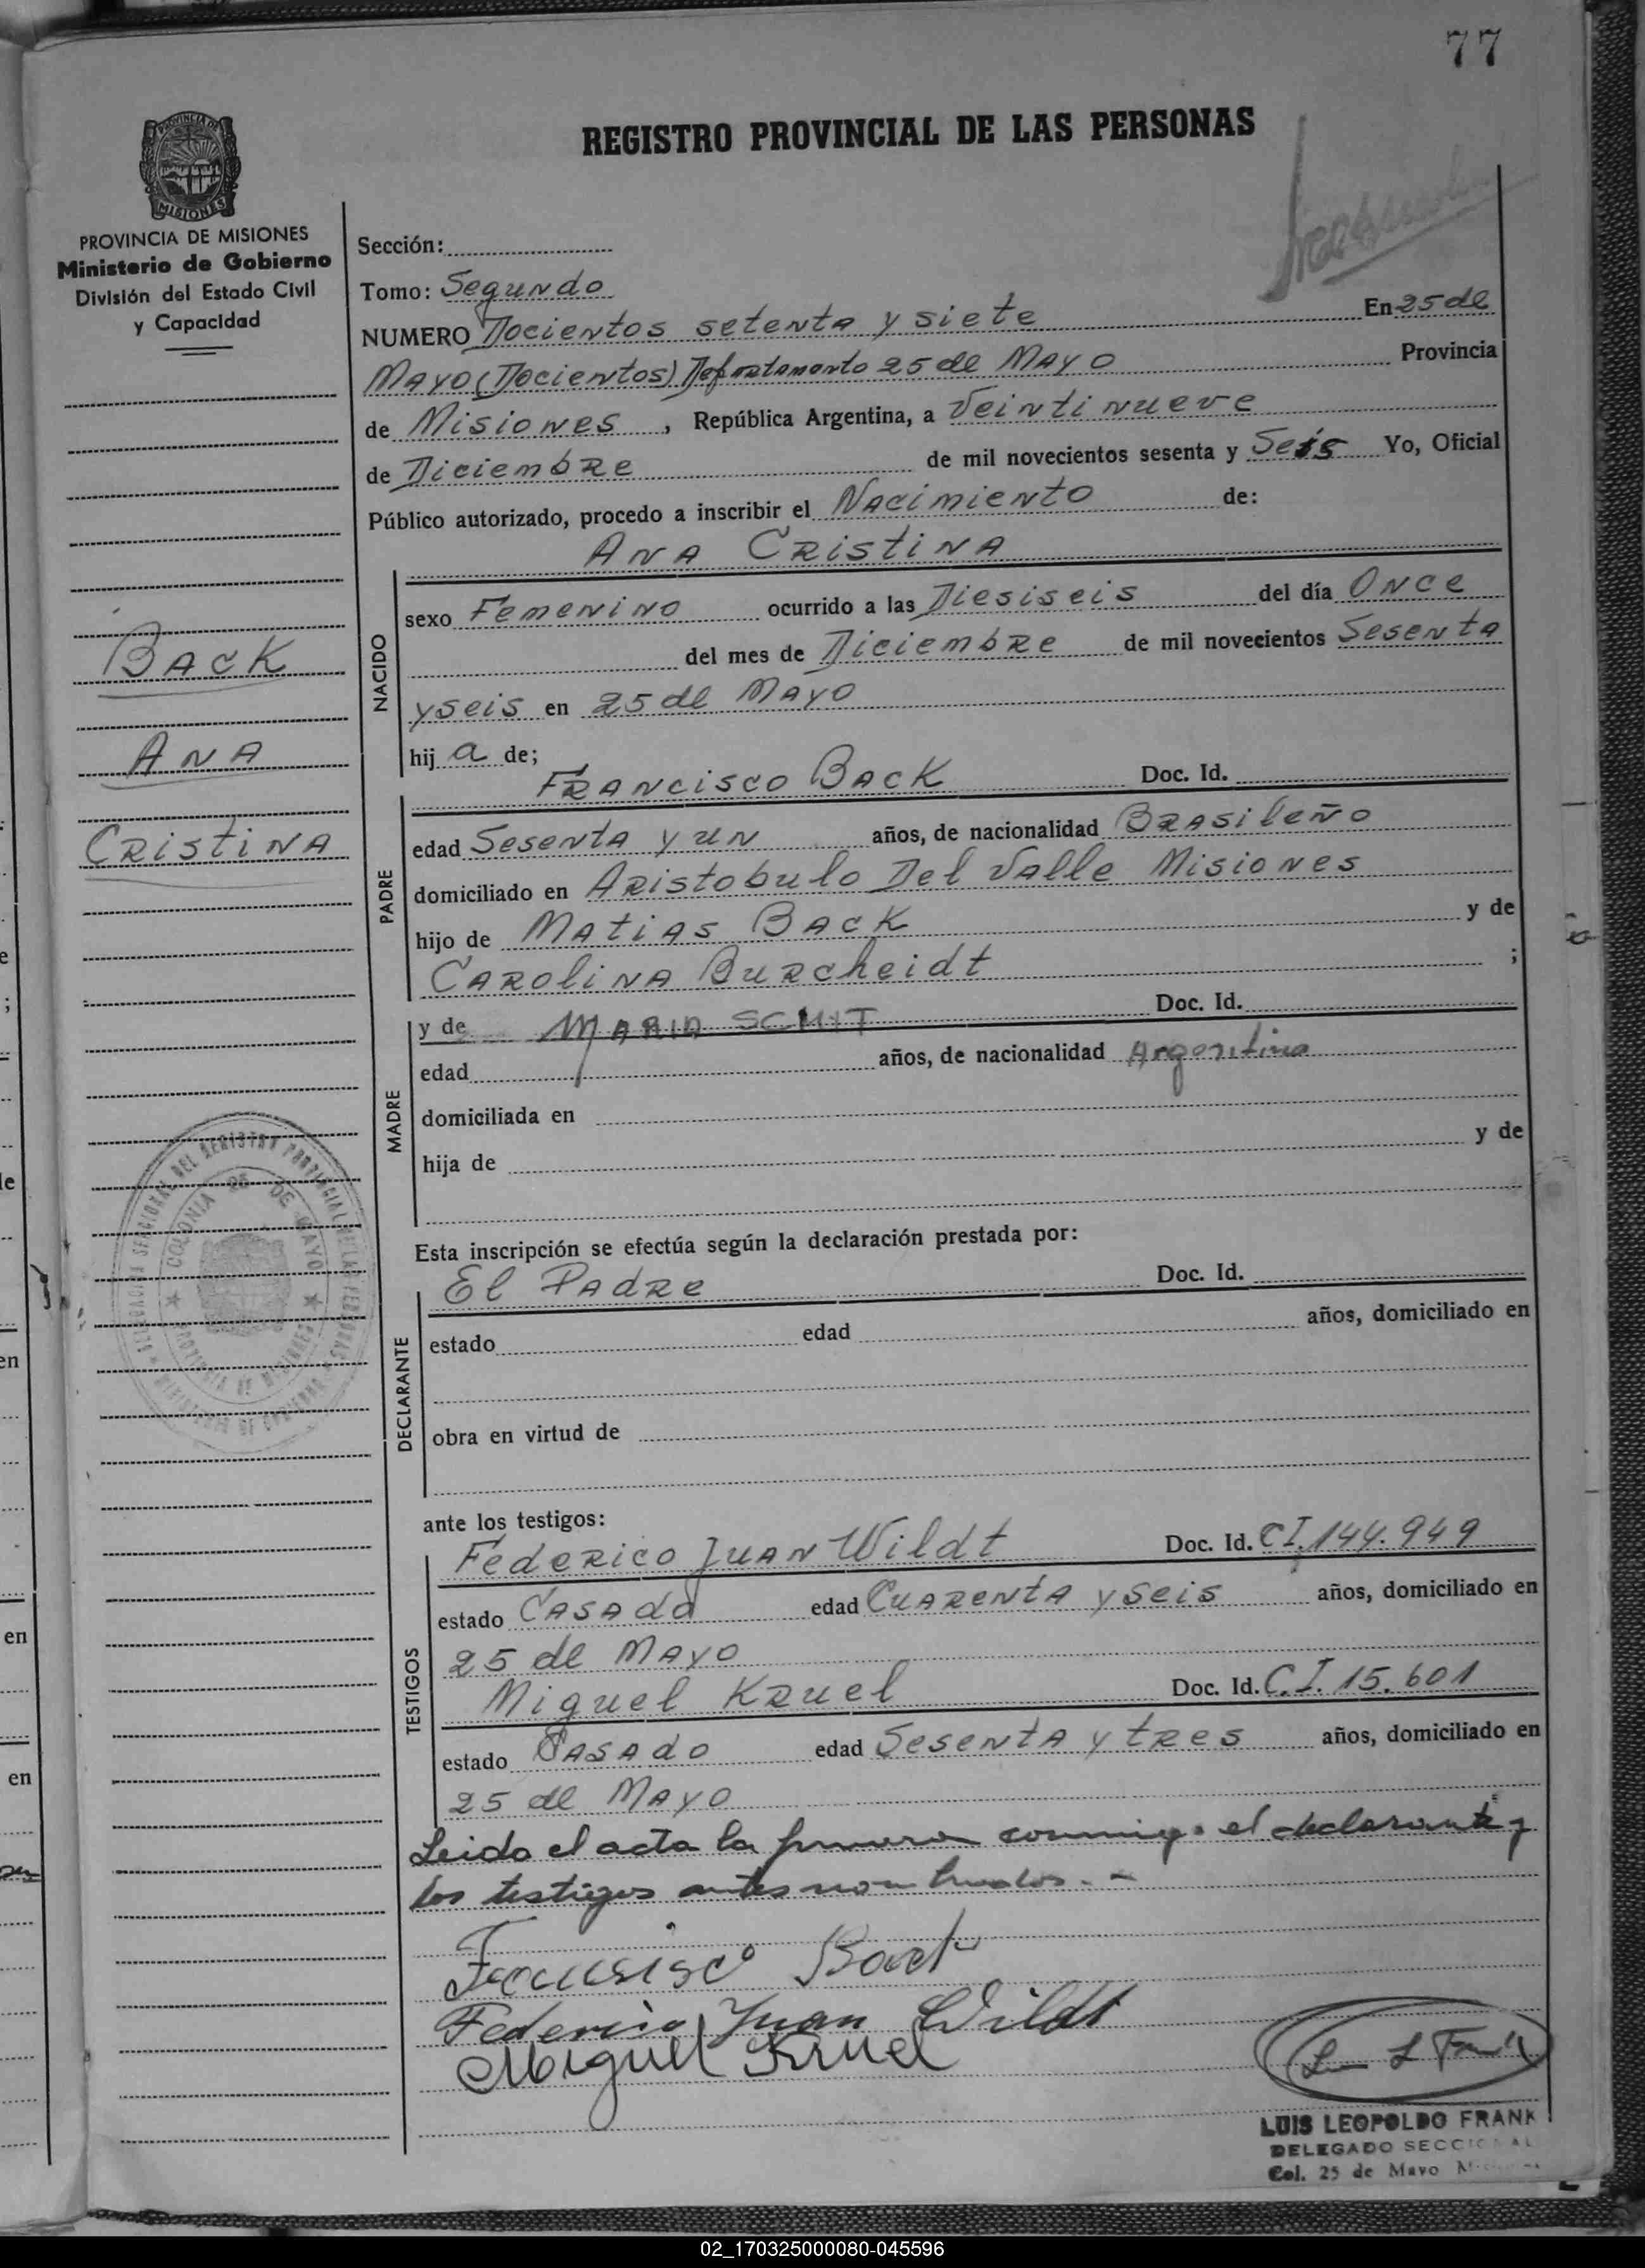 77
REGISTRO PROVINCIAL DE LAS PERSONAS
PROVINCIA DE MISIONES
MISIONES
PROVINCIA DE MISIONES
Ministerio de Gobierno
División del Estado Civil
y Capacidad
Sección:
Tomo: Segundo
NUMERO Docientos setenta y siete En 25 de
Mayo (Docientos) Departamento 25 de Mayo Provincia
de Misiones, República Argentina, a Veintinueve
de Diciembre de mil novecientos sesenta y Seis Yo, Oficial
Público autorizado, procedo a inscribir el Nacimiento de:
Ana Cristina
NACIDO
sexo Femenino ocurrido a las Diesiseis del día Once
del mes de Diciembre de mil novecientos Sesenta
y seis en 25 de Mayo
hija de;
Back
Ana
Cristina
PADRE
Francisco Back Doc. Id.
edad Sesenta y un años, de nacionalidad Brasileño
domiciliado en Aristobulo Del Valle Misiones
hijo de Matias Back y de
Carolina Burcheidt ;
MADRE
y de MARIA SCMIT Doc. Id.
edad años, de nacionalidad Argentina
domiciliada en
hija de y de
COLONIA 25 DE MAYO
Esta inscripción se efectúa según la declaración prestada por:
DECLARANTE
El Padre Doc. Id.
estado edad años, domiciliado en
obra en virtud de
ante los testigos:
TESTIGOS
Federico Juan Wildt Doc. Id. CI. 144.949
estado Casado edad Cuarenta y seis años, domiciliado en
25 de Mayo
Miguel Kruel Doc. Id. C.I. 15.601
estado Casado edad Sesenta y tres años, domiciliado en
25 de Mayo
Leido el acta la conmigo el declarante y
los testigos antes nombrados. -
Francisco Back
Federico Juan Wildt
Miguel Kruel
LUIS LEOPOLDO FRANK
DELEGADO SECCIONAL
Col. 25 de Mayo
02_170325000080-045596